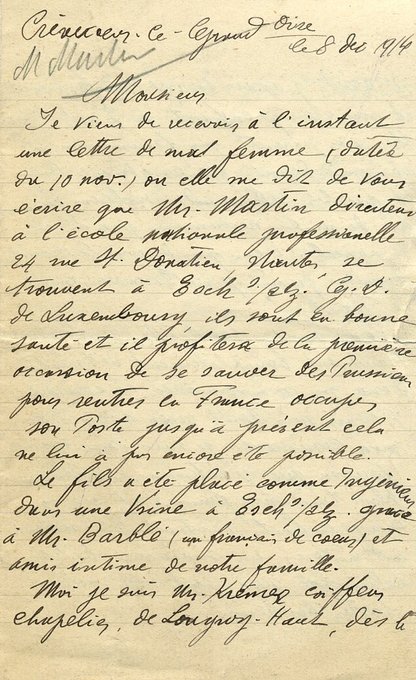 Crèvecœur-le-Grand Oise
le 8 dec 1914
M Martin
Monsieur
Je viens de recevoir à l'instant
une lettre de mal femme (datée
du 10 nov.) ou elle me dit de vous
écrire que Mr. Martin directeur
à l'école nationale professionelle
24 rue St. Donatien, Nantes, se
trouvent à Esch s/alz. G. D.
de Luxembourg, ils sont en bonne
santé et il profitera de la première
occasion de se sauver des Prussiens
pour rentrer en France occuper
son Poste jusqu'à présent cela
ne lui à pas encore été posible.
Le fils a été placé comme Ingénieur
dans une Usine à Esch s/alz. grace
à Mr. Barblé (un français de coeur) et
amis intime de notre famille.
Moi je suis Mr. Krémer coiffeur
chapelier, de Longwy-Haut, dès le